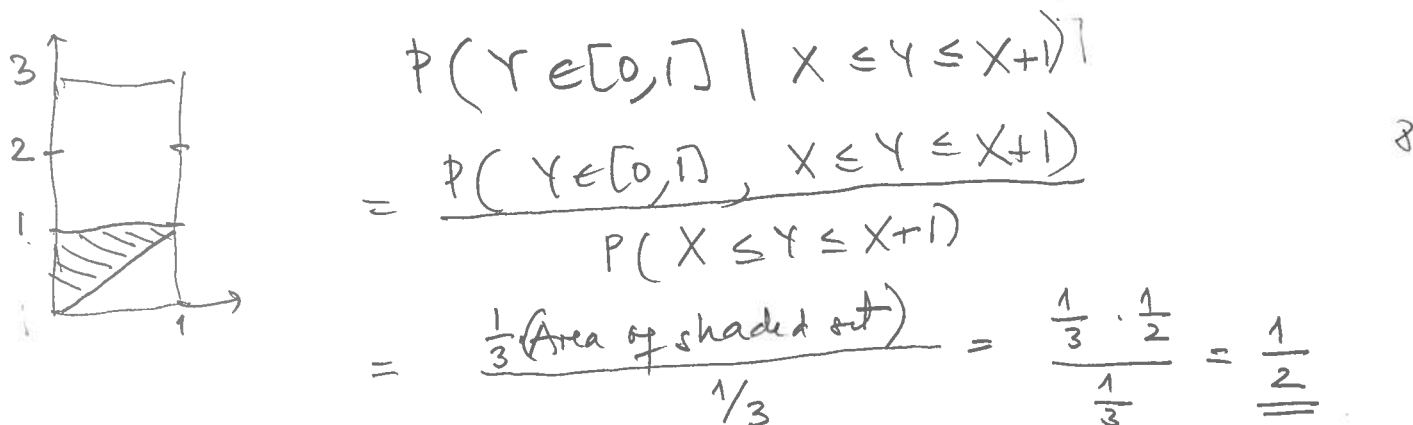 3
2
1
1
P(Y∈[0,1] | X ≤ Y ≤ X+1)
= P(Y∈[0,1], X ≤ Y ≤ X+1)
P(X ≤ Y ≤ X+1)
8
= 1/3 (Area of shaded set) / 1/3 = 1/3 · 1/2 / 1/3 = 1/2